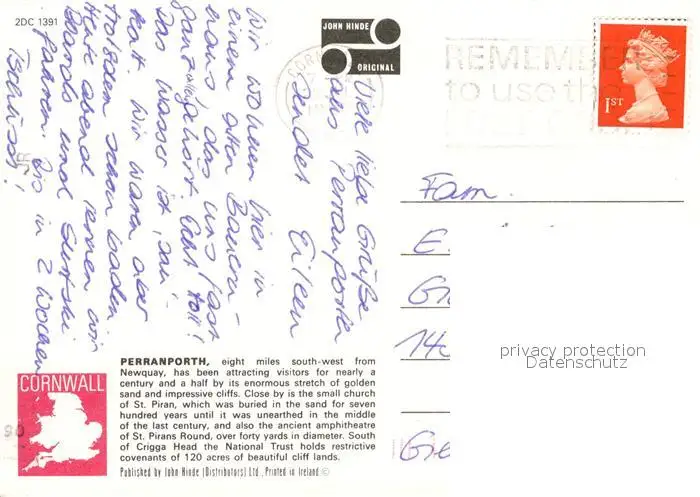 2DC 1391
JOHN HINDE
ORIGINAL
REMEMBER
to use the
1ST
Viele liebe Grüße
aus Perranporth
sendet Eileen
Wir wohnen hier in
einem alten Bauern-
haus das uns fast
ganz allein gehört. Echt toll!
Das Wasser ist, sau-
kalt. Wir waren aber
trotzdem schon baden
Heute abend lernen wir
Boards und Surfski
fahren. Bis in 2 Wochen
Tschüss!
Fam.
E.
G
14
G
privacy protection
Datenschutz
PERRANPORTH, eight miles south-west from
Newquay, has been attracting visitors for nearly a
century and a half by its enormous stretch of golden
sand and impressive cliffs. Close by is the small church
of St. Piran, which was buried in the sand for seven
hundred years until it was unearthed in the middle
of the last century, and also the ancient amphitheatre
of St. Pirans Round, over forty yards in diameter. South
of Crigga Head the National Trust holds restrictive
covenants of 120 acres of beautiful cliff lands.
Published by John Hinde (Distributors) Ltd., Printed in Ireland ©
CORNWALL